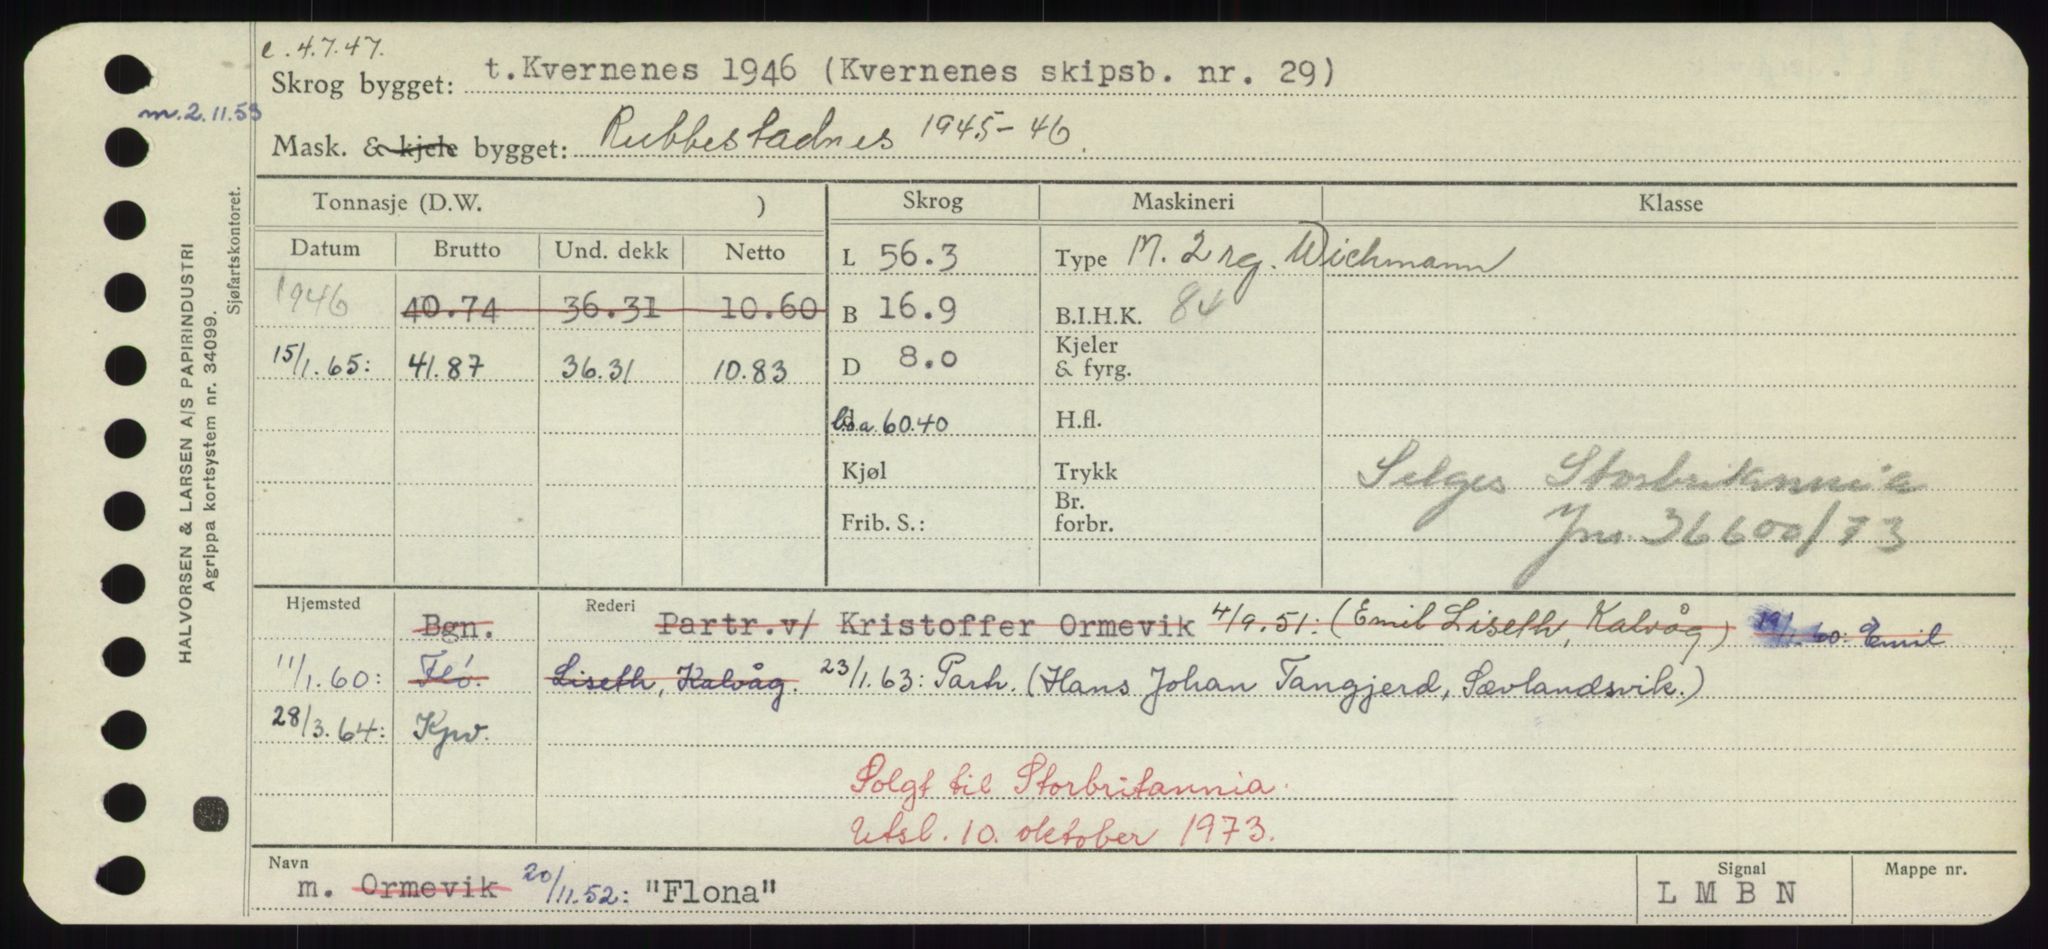 c. 4.7.47.
Skrog bygget: t. Kvernenes 1946 (Kvernenes skipsb. nr. 29)
m. 2.11.53
Mask. & kjele bygget: Rubbestadnes 1945-46.
HALVORSEN & LARSEN A/S PAPIRINDUSTRI
Agrippa kortsystem nr. 34099.
Sjøfartskontoret.
Tonnasje (D.W. ) Skrog Maskineri Klasse
Datum Brutto Und. dekk Netto L 56.3 Type M. 2 rg. Wichmann
1946 40.74 36.31 10.60 B 16.9 B.I.H.K. 84
15/1.65: 41.87 36.31 10.83 D 8.0 Kjeler & fyrg.
l.o.a. 60.40 H.fl.
Kjøl Trykk Selges Storbritannia
Frib. S.: Br. forbr. Jnr. 36600/73
Hjemsted Bgn. Rederi Partr. v/ Kristoffer Ormevik 4/9.51: (Emil Liseth, Kalvåg) 19/1.60: Emil
11/1.60: Flø. Liseth, Kalvåg. 23/1.63: Partr. (Hans Johan Tangjerd, Sævlandsvik.)
28/3.64: Kpv.
Solgt til Storbritannia.
Utsl. 10. oktober 1973.
Navn Signal Mappe nr.
m. Ormevik 20/11.52: "Flona" L M B N